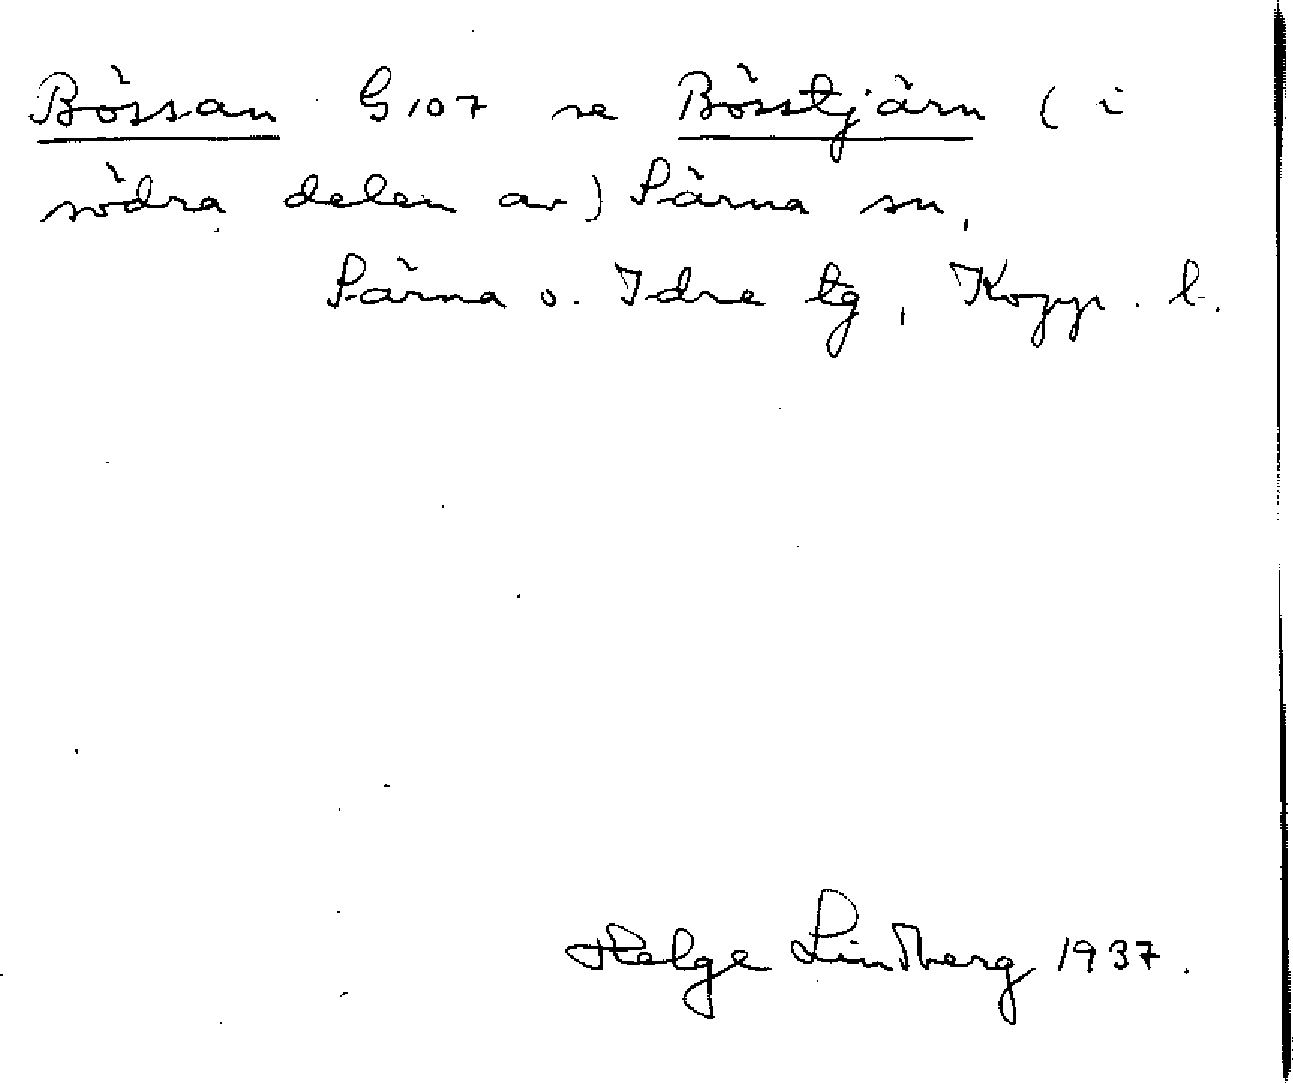 Bössan G 107 se Bösstjärn (i
södra delen av) Särna sn,
Särna o. Idre tg, Kopp. l.
Helge Lindberg 1937.